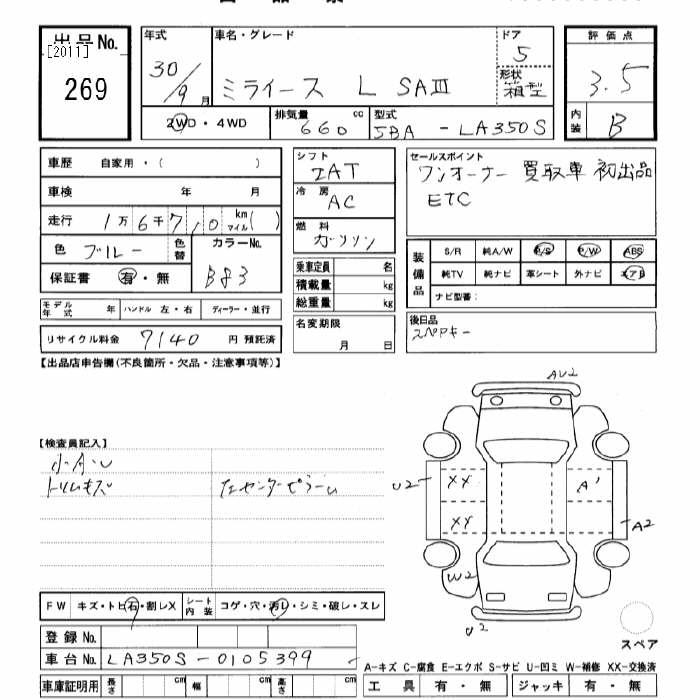 出品No.
[2011]
269
年式
30/9月
車名・グレード
ミライース L SAⅢ
ドア
5
形状
箱型
評価点
3.5
内装
B
2WD・4WD
排気量 660 cc
型式 5BA - LA350S
車歴 自家用・( )
車検 年 月
走行 1万6千7,1,0 km マイル( )
色 ブルー 色替 カラーNo. B83
保証書 有・無
モデル年式 年 ハンドル 左・右 ディーラー・並行
リサイクル料金 7140 円 預託済
シフト
IAT
冷房
AC
燃料
ガソリン
乗車定員 名
積載量 kg
総重量 kg
名変期限
月 日
セールスポイント
ワンオーナー 買取車 初出品
ETC
装備品
S/R 純A/W P/S P/W ABS
純TV 純ナビ 革シート 外ナビ エアB
ナビ型番:
後日品
スペアキー
【出品店申告欄(不良箇所・欠品・注意事項等)】
【検査員記入】
小A、U
トリムキズ
左センターピラーU
AU2
U2
XX
A1
XX
A2
W2
U2
スペア
FW キズ・トビ石・割レX シート内装 コゲ・穴・汚レ・シミ・破レ・スレ
登録No.
車台No. LA350S-0105399
車庫証明用 長さ cm 幅 cm 高さ cm
A-キズ C-腐食 E-エクボ S-サビ U-凹ミ W-補修 XX-交換済
工具 有・無 ジャッキ 有・無